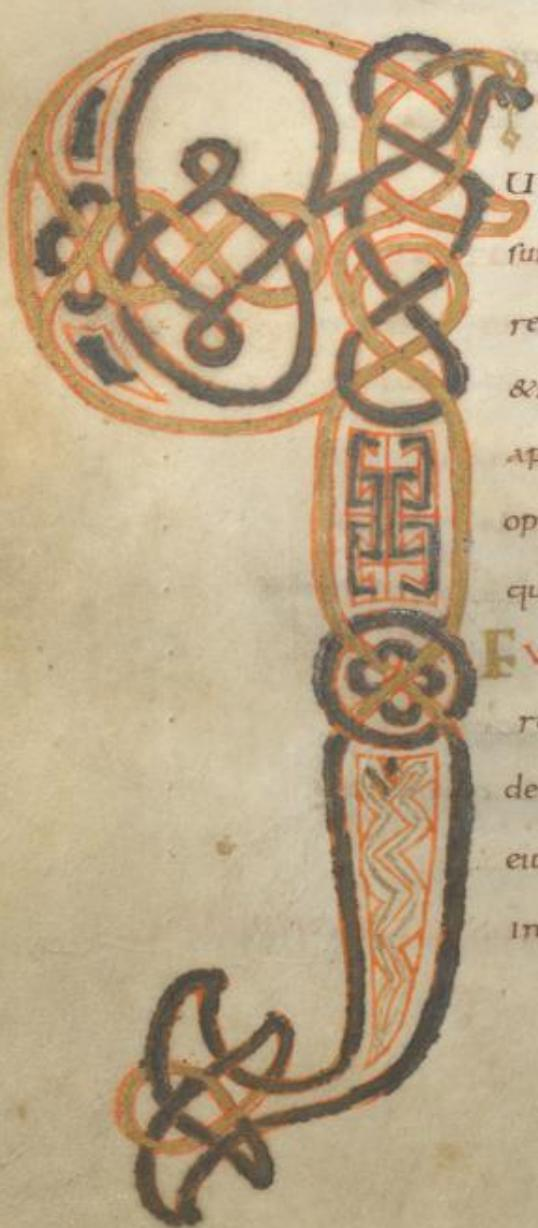 Q
U
sur
re
&
ap
op
qu
FV
r
de
eu
in